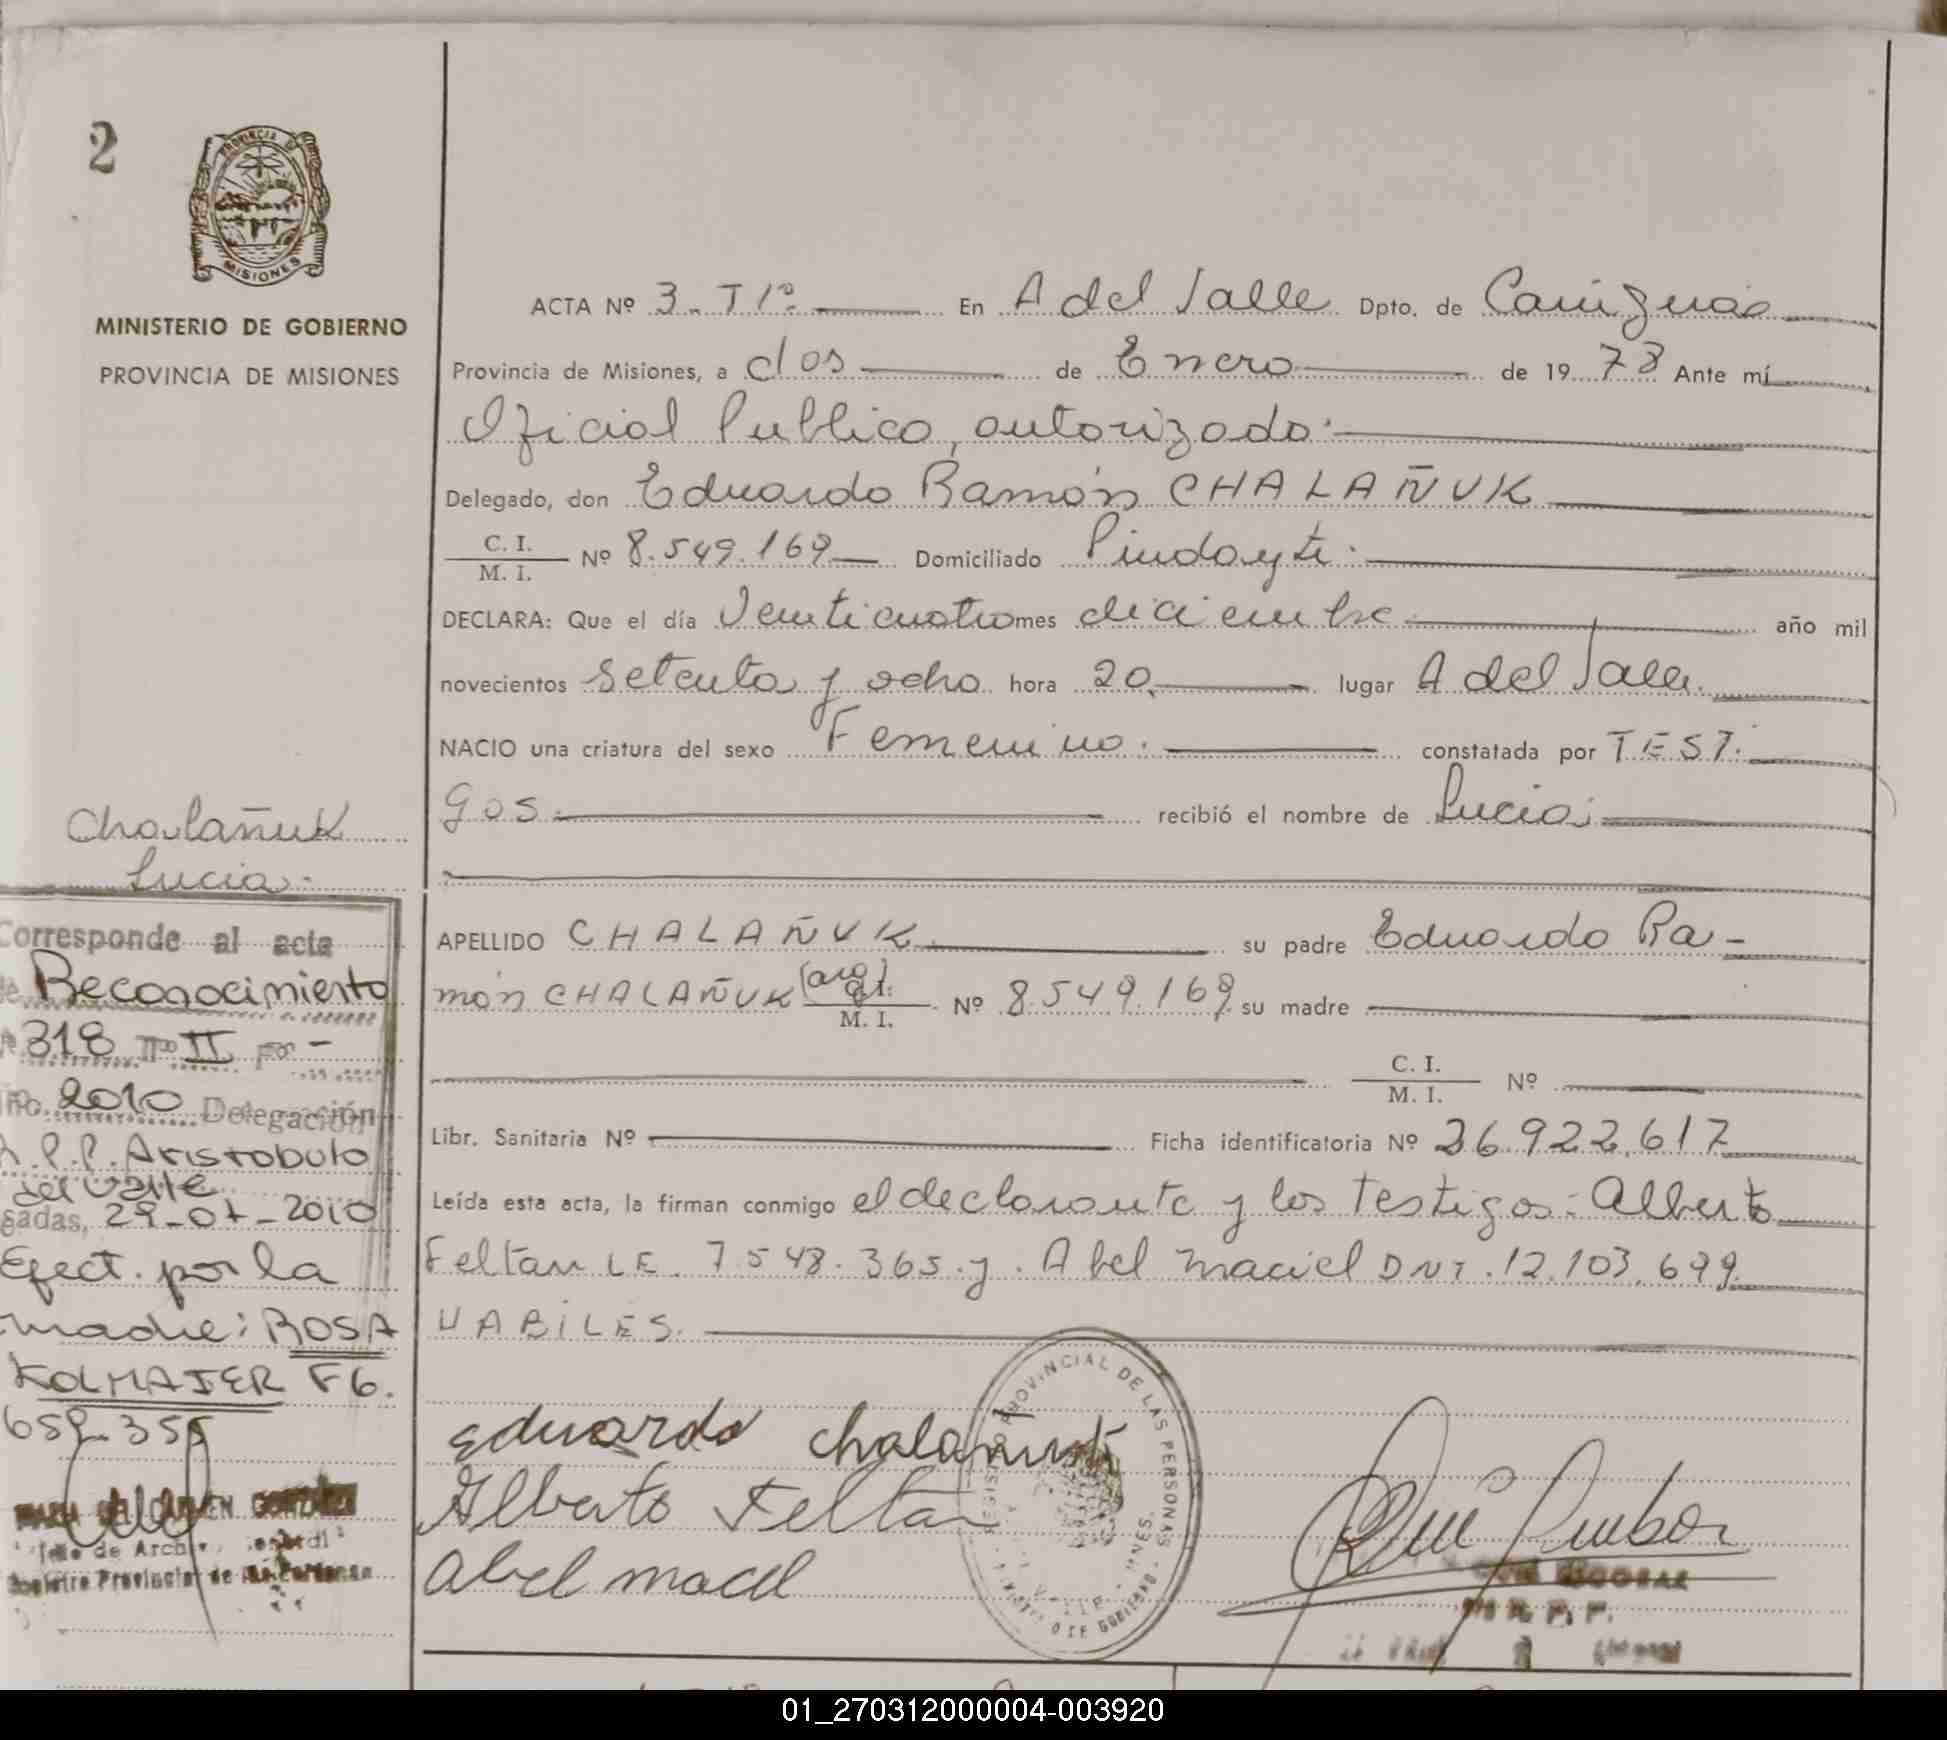 2
PROVINCIA DE
MISIONES
MINISTERIO DE GOBIERNO
PROVINCIA DE MISIONES
ACTA Nº 3. Tº 1º En A del Valle Dpto. de Cainguás
Provincia de Misiones, a dos de Enero de 19 78 Ante mí
Oficial Publico, autorizado.
Delegado, don Eduardo Ramón CHALAÑUK
C. I.
M. I. Nº 8.549.169 Domiciliado Pindayti.
DECLARA: Que el día Veinticuatro mes diciembre año mil
novecientos setenta y ocho hora 20. lugar A del Valle.
NACIO una criatura del sexo Femenino. constatada por TESTI
gos. recibió el nombre de Lucia.
Chalañuk
Lucia.
APELLIDO CHALAÑUK su padre Eduardo Ra-
món CHALAÑUK (arg) C. I.
M. I. Nº 8.549.169 su madre
C. I.
M. I. Nº
Libr. Sanitaria Nº Ficha identificatoria Nº 26.922.617
Leída esta acta, la firman conmigo el declarante y los Testigos: Alberto
Feltan LE. 7.548.365. y. Abel Maciel DNI. 12.103.699
HABILES.
Corresponde al acta
de Reconocimiento
318 Tº II Fº -
Año 2010 Delegación
R.P.P. Aristobulo
del Valle
sadas, 29-07-2010
Efect. por la
madre: ROSA
KOLMAJER F6.
MARIA DEL CARMEN GONZALEZ
Registro Provincial de las Personas
Eduardo Chalañuk
Alberto Feltan
Abel macel
PROVINCIAL DE LAS PERSONAS
GOBIERNO
01_270312000004-003920